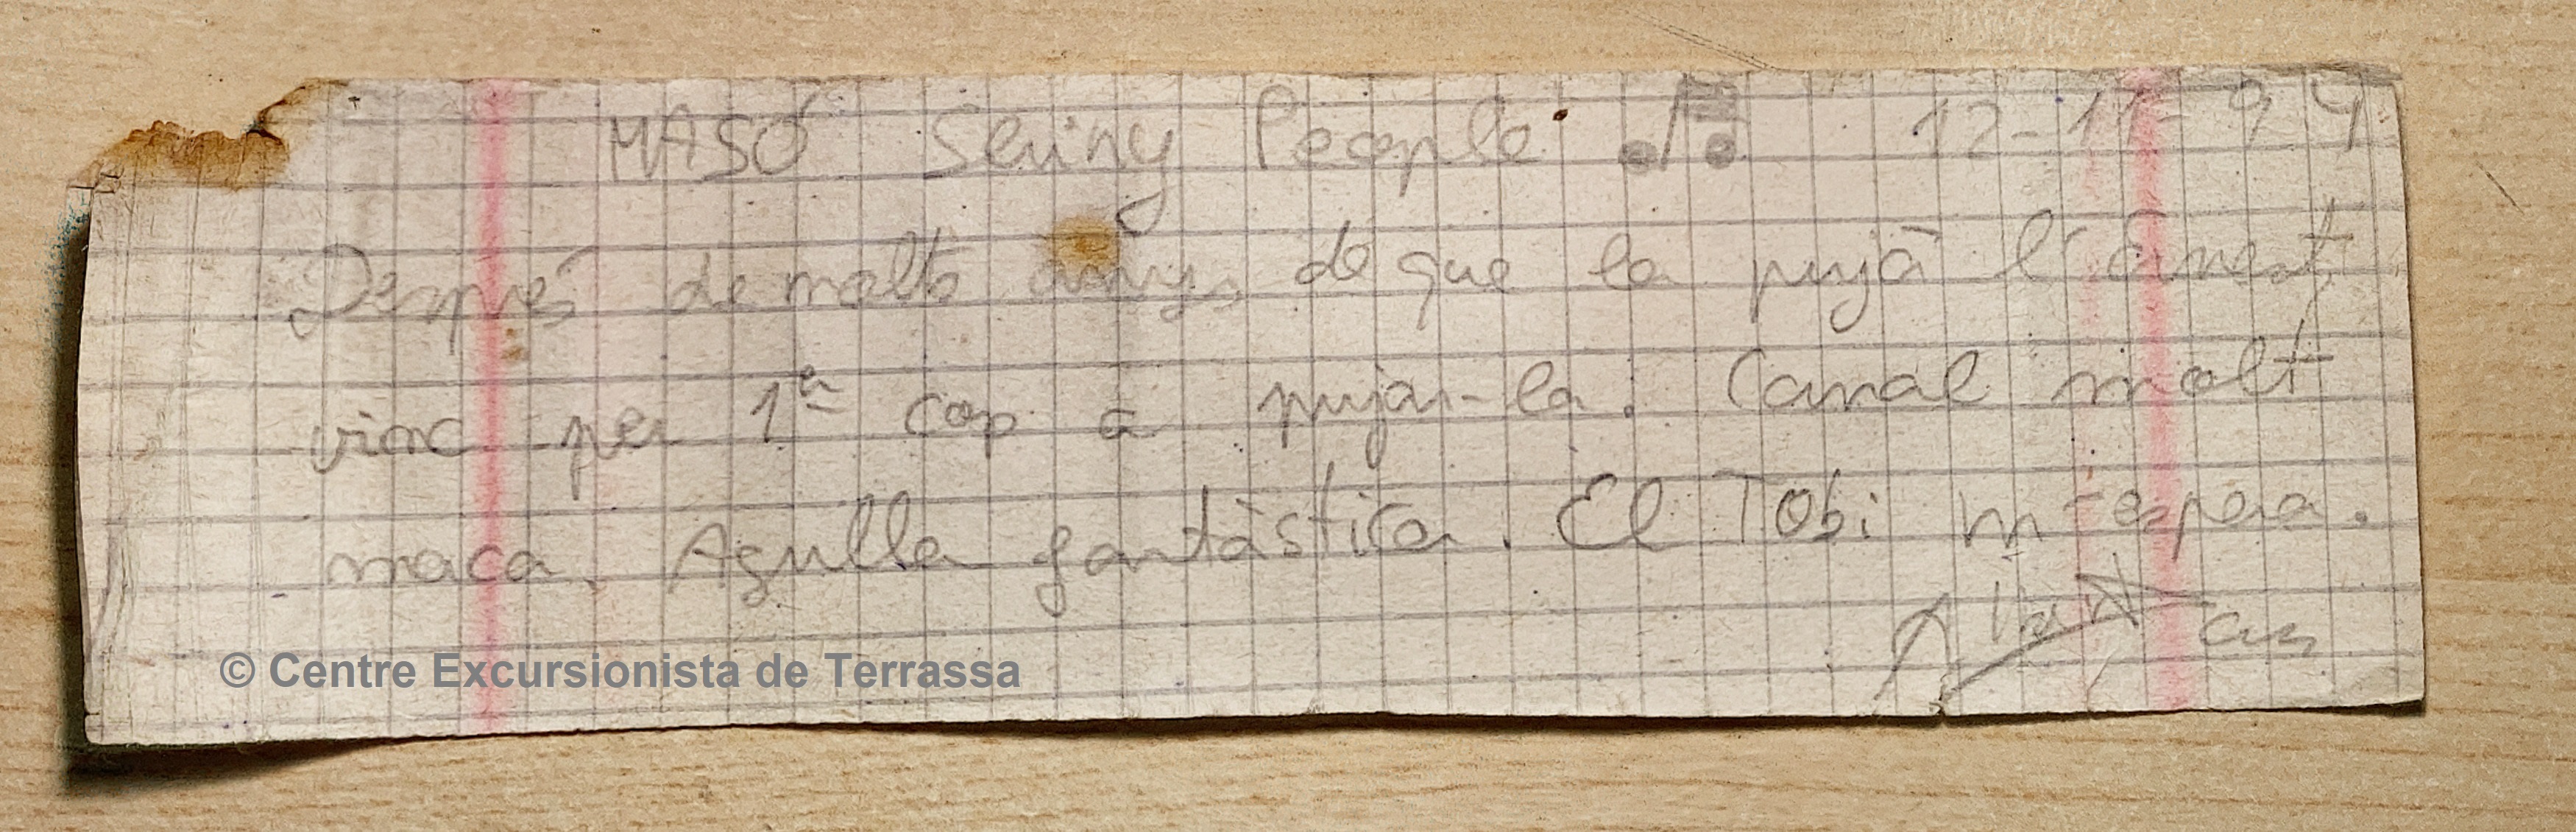 MASÓ Shiny People 12-11-94
Després de molts anys, de que la pujà l'Ernest,
vinc per 1ª cop a pujar-la. Canal molt
maca. Agulla fantàstica. El Tobi m'espera.
© Centre Excursionista de Terrassa